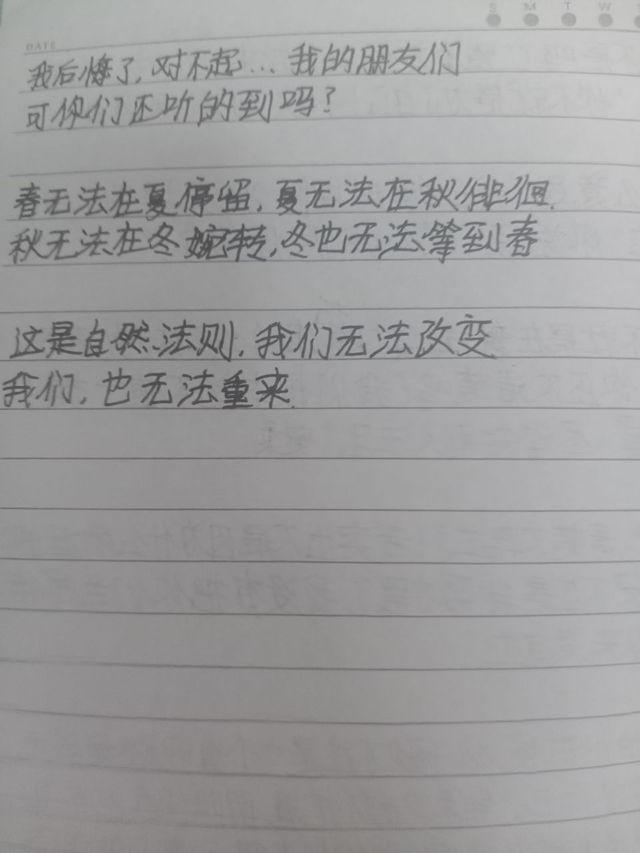 S M T W
DATE
我后悔了,对不起...我的朋友们
可你们还听的到吗?
春无法在夏停留,夏无法在秋徘徊.
秋无法在冬婉转,冬也无法等到春
这是自然法则,我们无法改变
我们,也无法重来.